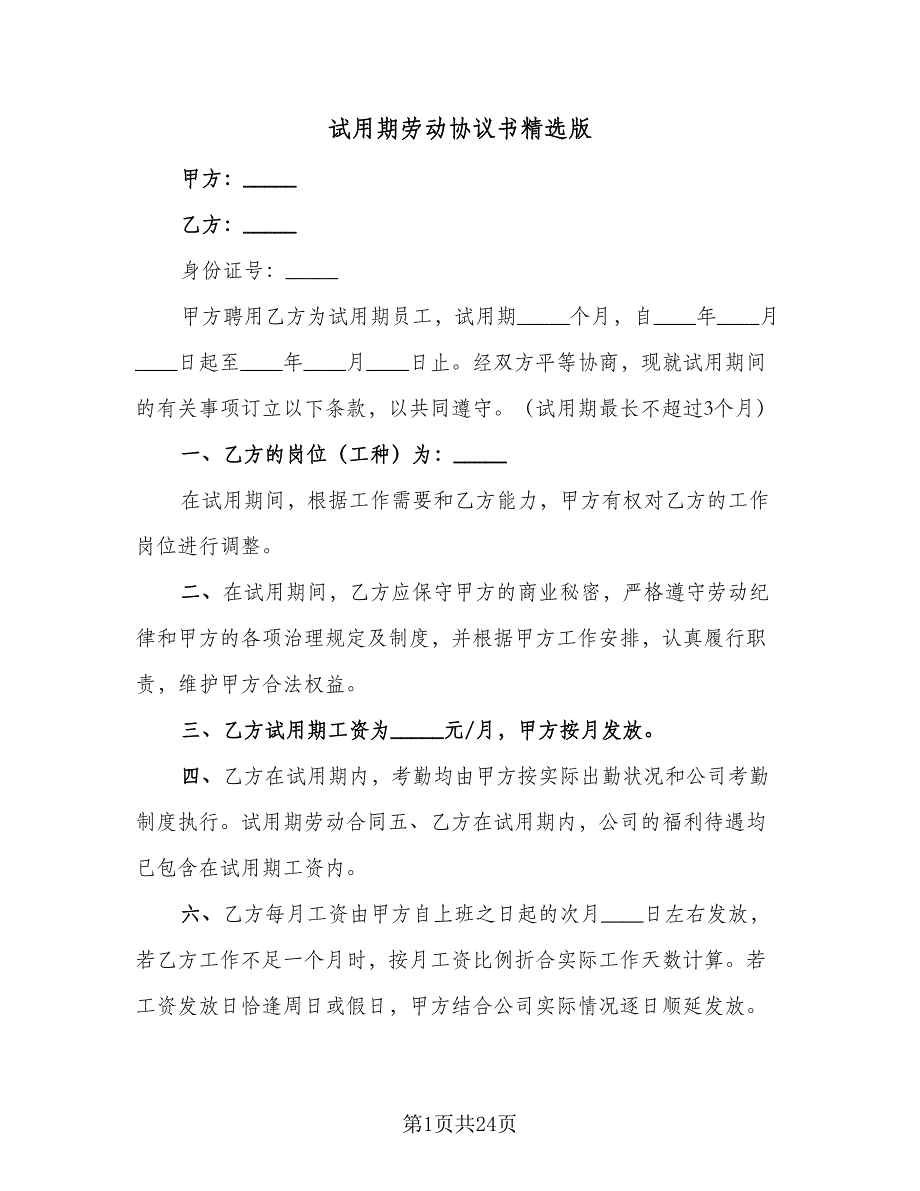 试用期劳动协议书精选版
甲方：_____
乙方：_____
身份证号：_____
甲方聘用乙方为试用期员工，试用期_____个月，自____年____月
____日起至____年____月____日止。经双方平等协商，现就试用期间
的有关事项订立以下条款，以共同遵守。（试用期最长不超过3个月）
一、乙方的岗位（工种）为：_____
在试用期间，根据工作需要和乙方能力，甲方有权对乙方的工作
岗位进行调整。
二、在试用期间，乙方应保守甲方的商业秘密，严格遵守劳动纪
律和甲方的各项治理规定及制度，并根据甲方工作安排，认真履行职
责，维护甲方合法权益。
三、乙方试用期工资为_____元/月，甲方按月发放。
四、乙方在试用期内，考勤均由甲方按实际出勤状况和公司考勤
制度执行。试用期劳动合同五、乙方在试用期内，公司的福利待遇均
已包含在试用期工资内。
六、乙方每月工资由甲方自上班之日起的次月____日左右发放，
若乙方工作不足一个月时，按月工资比例折合实际工作天数计算。若
工资发放日恰逢周日或假日，甲方结合公司实际情况逐日顺延发放。
第1页共24页